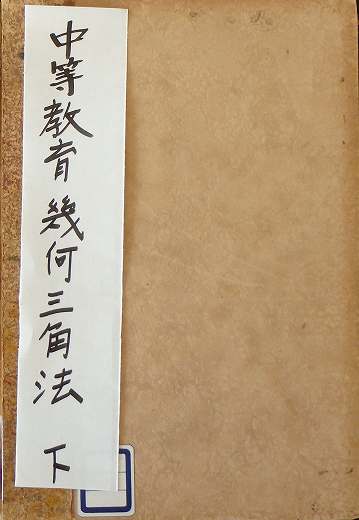 中等教育 幾何三角法 下